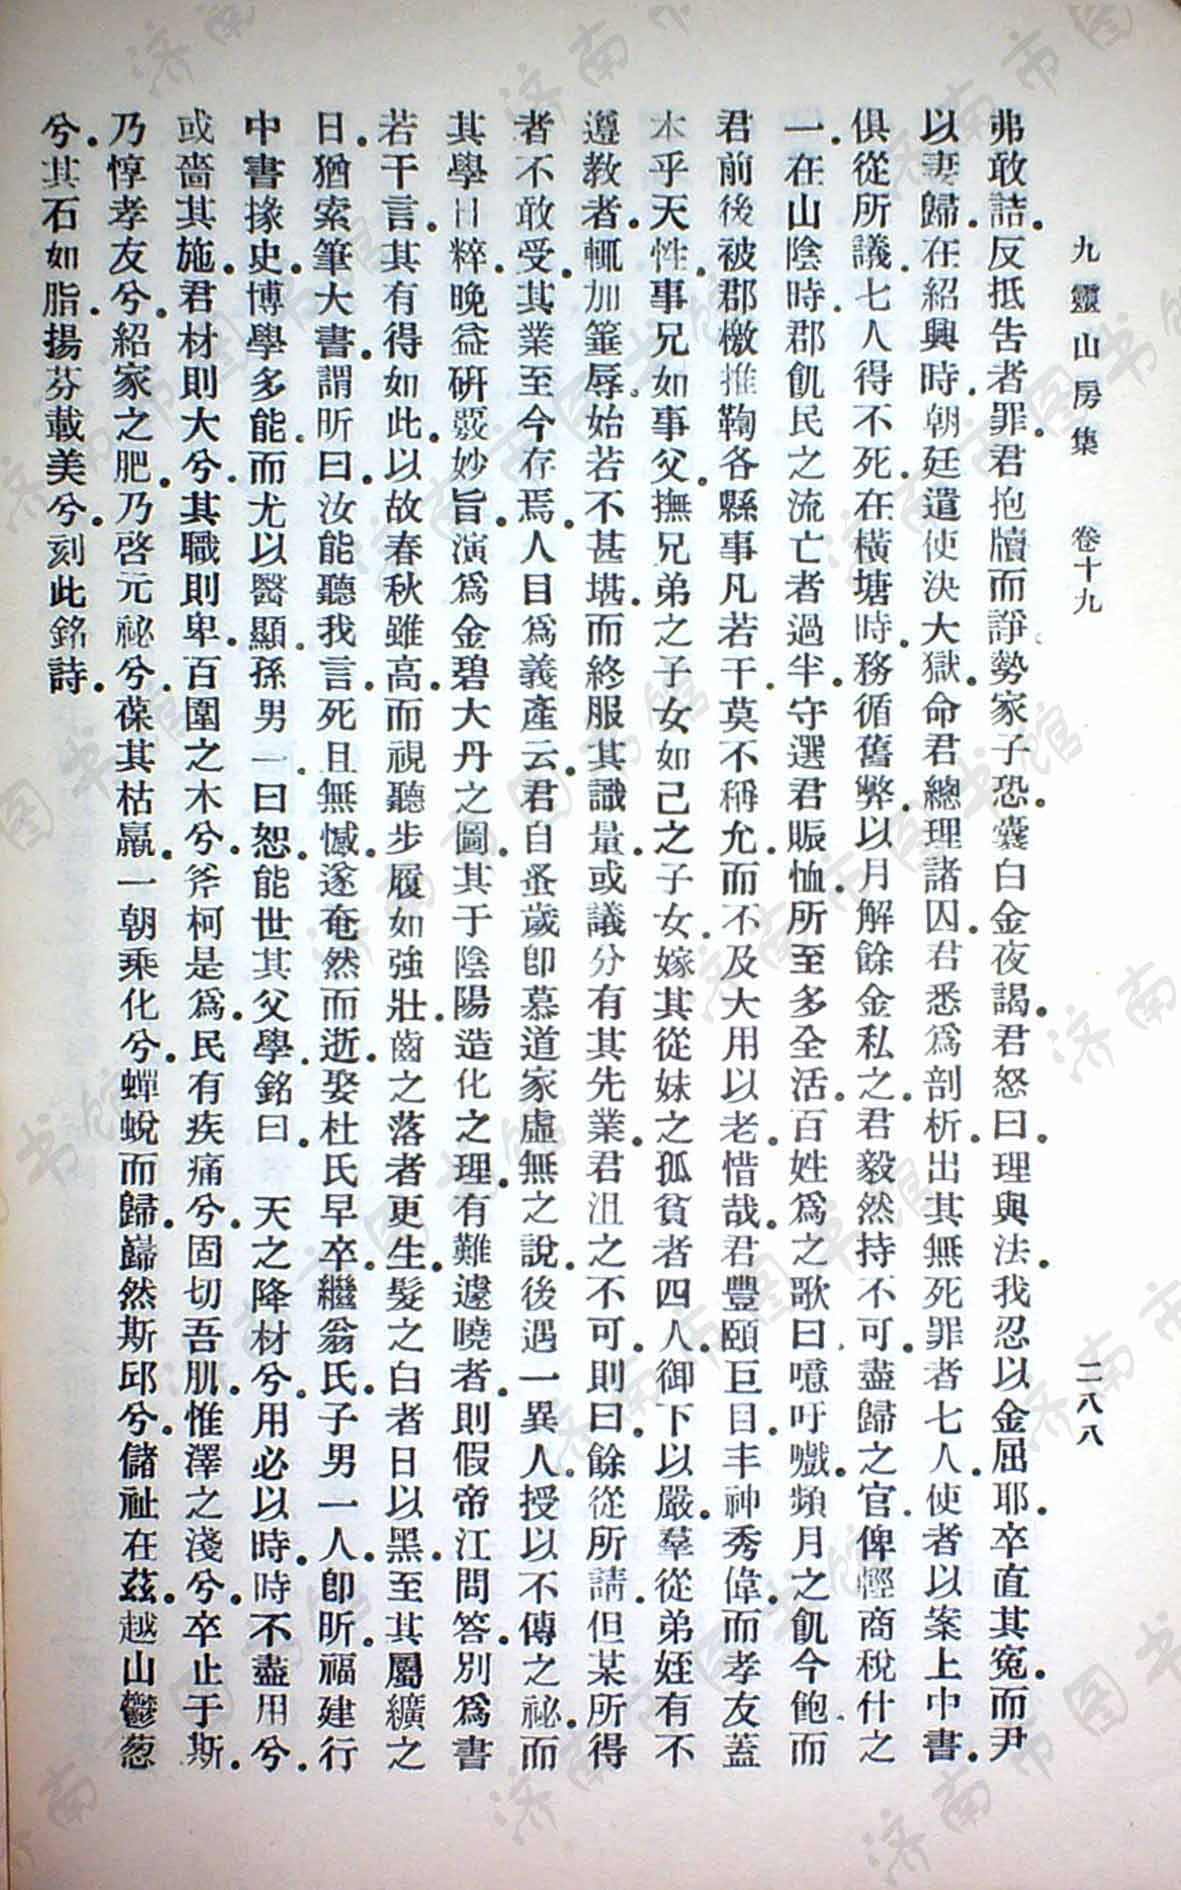 九靈山房集　卷十九　二八八
弗敢詰。反抵告者罪。君抱牘而諍。勢家子恐。囊白金夜謁。君怒曰。理與法。我忍以金屈耶。卒直其冤。而尹
以妻歸。在紹興時。朝廷遣使決大獄。命君總理諸囚。君悉爲剖析。出其無死罪者七人。使者以案上中書。
俱從所議。七人得不死。在橫塘時。務循舊弊。以月解餘金私之。君毅然持不可。盡歸之官。俾輕商稅什之
一。在山陰時。郡飢民之流亡者過半。守選君賑恤。所至多全活。百姓爲之歌曰。噫吁嘻。頻月之飢今飽。而
君前後被郡檄推鞫各縣事凡若干。莫不稱允。而不及大用以老。惜哉。君豐頤巨目。丰神秀偉。而孝友蓋
本乎天性。事兄如事父。撫兄弟之子女如己之子女。嫁其從妹之孤貧者四人。御下以嚴。羣從弟姪有不
遵教者。輒加箠辱。始若不甚堪。而終服其識量。或議分有其先業。君沮之不可。則曰。餘從所請。但某所得
者不敢受。其業至今存焉。人目爲義產云。君自蚤歲卽慕道家虛無之說。後遇一異人。授以不傳之祕。而
其學日粹。晚益研覈妙旨。演爲金碧大丹之圖。其于陰陽造化之理。有難遽曉者。則假帝江問答。別爲書
若干言。其有得如此。以故春秋雖高。而視聽步履如強壯。齒之落者更生。髮之白者日以黑。至其屬纊之
日。猶索筆大書。謂昕曰。汝能聽我言。死且無憾。遂奄然而逝。娶杜氏早卒。繼翁氏。子男一人。卽昕。福建行
中書掾史。博學多能。而尤以醫顯。孫男一。曰恕。能世其父學。銘曰。　天之降材兮。用必以時。時不盡用兮。
或嗇其施。君材則大兮。其職則卑。百圍之木兮。斧柯是爲。民有疾痛兮。固切吾肌。惟澤之淺兮。卒止于斯。
乃惇孝友兮。紹家之肥。乃啓元祕兮。葆其枯羸。一朝乘化兮。蟬蛻而歸。巋然斯邱兮。儲祉在茲。越山鬱葱
兮。其石如脂。揚芬載美兮。刻此銘詩。